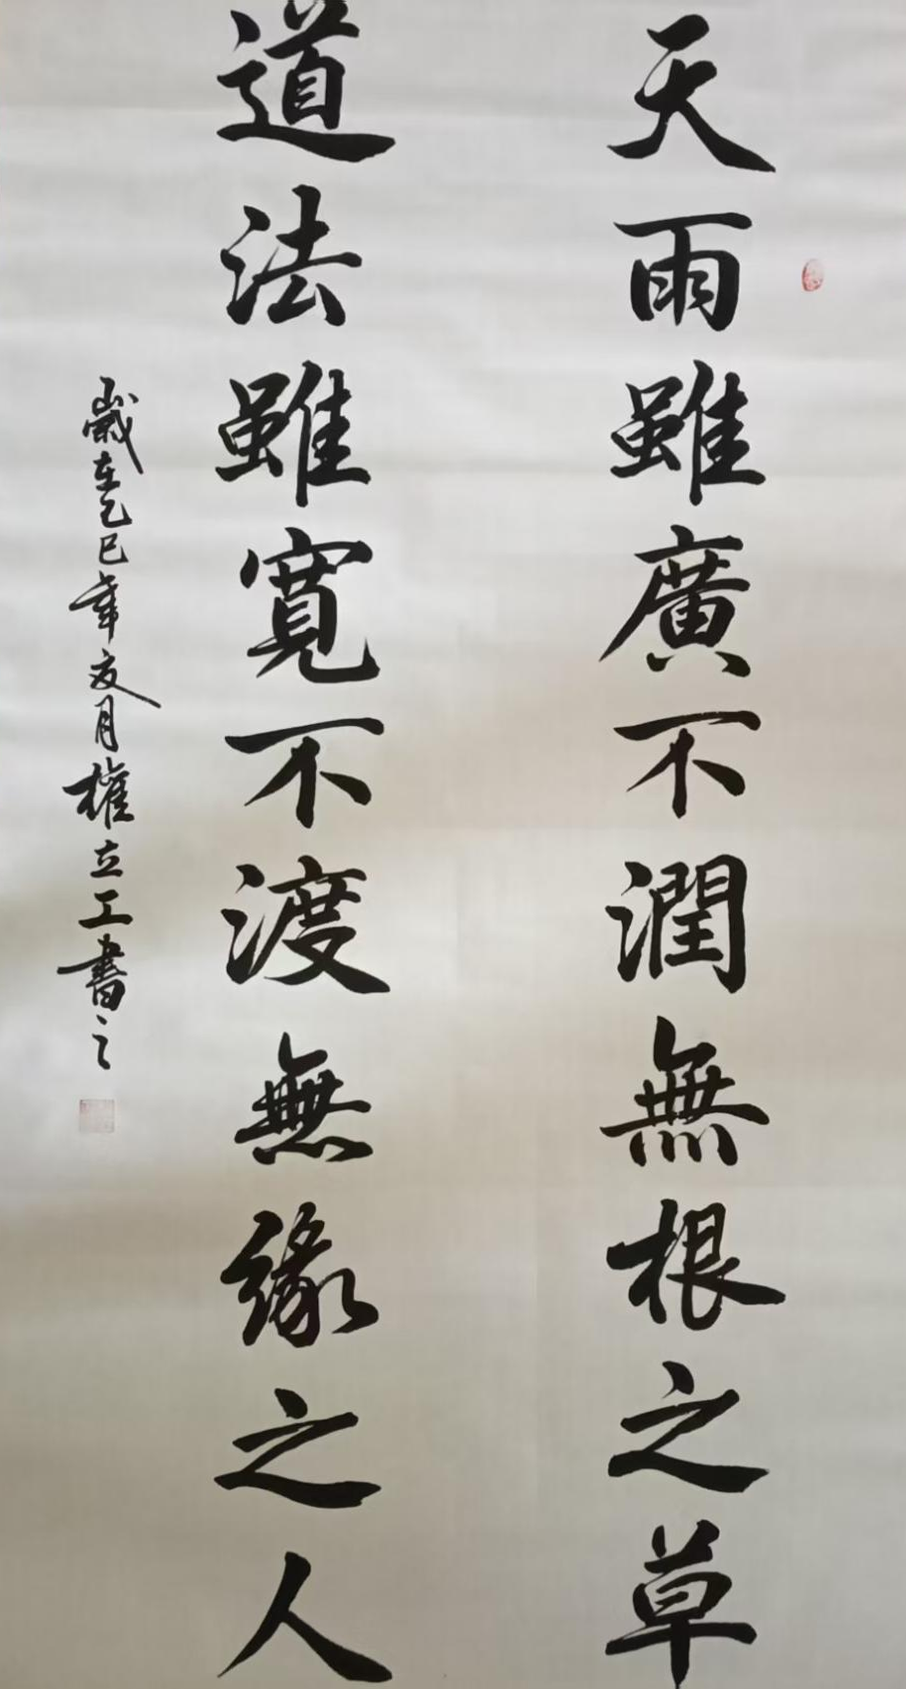 天雨雖廣不潤無根之草
道法雖寬不渡無緣之人
歲在乙巳年夏月權立工書之